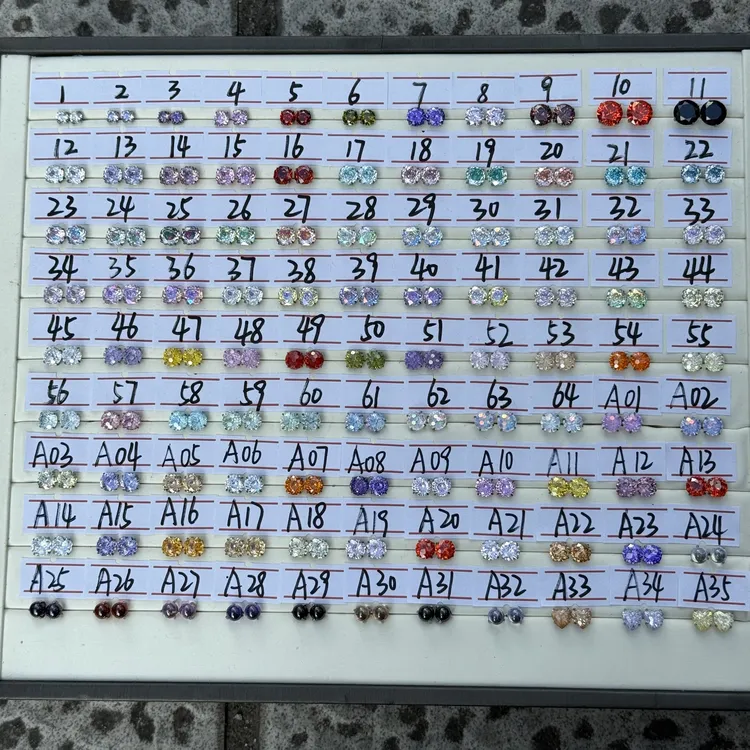 1 2 3 4 5 6 7 8 9 10 11
12 13 14 15 16 17 18 19 20 21 22
23 24 25 26 27 28 29 30 31 32 33
34 35 36 37 38 39 40 41 42 43 44
45 46 47 48 49 50 51 52 53 54 55
56 57 58 59 60 61 62 63 64 A01 A02
A03 A04 A05 A06 A07 A08 A09 A10 A11 A12 A13
A14 A15 A16 A17 A18 A19 A20 A21 A22 A23 A24
A25 A26 A27 A28 A29 A30 A31 A32 A33 A34 A35